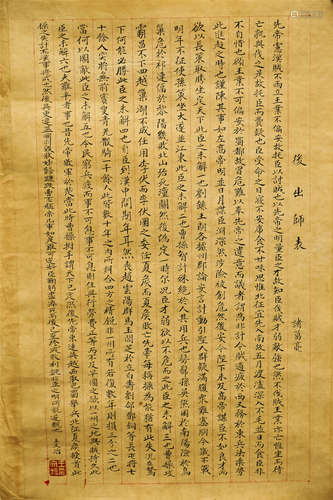 後出師表
諸葛亮
先帝慮漢賊不兩立王業不偏安故託臣以討賊也以先帝之明量臣之才故知臣伐賊才弱敵強也然不伐賊王業亦亡惟坐而待
亡孰與伐之是故託臣而弗疑也臣受命之日寢不安席食不甘味思惟北征宜先入南故五月渡瀘深入不毛並日而食臣非
不自惜也顧王業不可偏安於蜀都故冒危難以奉先帝之遺意而議者謂為非計今賊適疲於西又務於東兵法乘勞
此進趨之時也謹陳其事如左高帝明並日月謀臣淵深然涉險被創危然後安今陛下未及高帝謀臣不如良平而
欲以長策取勝坐定天下此臣之未解一也劉繇王朗各據州郡論安言計動引聖人群疑滿腹眾難塞胸今歲不戰
明年不征使孫策坐大遂並江東此臣之未解二也曹操智計殊絕於人其用兵也髣髴孫吳然困於南陽險於烏
巢危於祁連偪於黎陽幾敗北山殆死潼關然後偽定一時爾況臣才弱而欲以不危而定之此臣之未解三也曹操五攻
昌霸不下四越巢湖不成任用李服而李服圖之委任夏侯而夏侯敗亡先帝每稱操為能猶有此失況臣駑
下何能必勝此臣之未解四也自臣到漢中中間期年耳然喪趙雲陽群馬玉閻芝丁立白壽劉郃鄧銅等曲長屯將七
十餘人突將無前賨叟青羌散騎武騎一千餘人此皆數十年之內所糾合四方之精銳非一州之所有若復數年則損三分之二也
當何以圖敵此臣之未解五也今民窮兵疲而事不可息事不可息則住與行勞費正等而不及早圖之欲以一州之地與賊持久此
臣之未解六也夫難平者事也昔先帝敗軍於楚當此時曹操拊手謂天下已定然後先帝東連吳越西取巴蜀舉兵北征夏侯授首此
操之失計而漢事將成也然後吳更違盟關羽毀敗秭歸蹉跌曹丕稱帝凡事如是難可逆料臣鞠躬盡瘁死而後已至於成敗利鈍非臣之明所能逆覩也